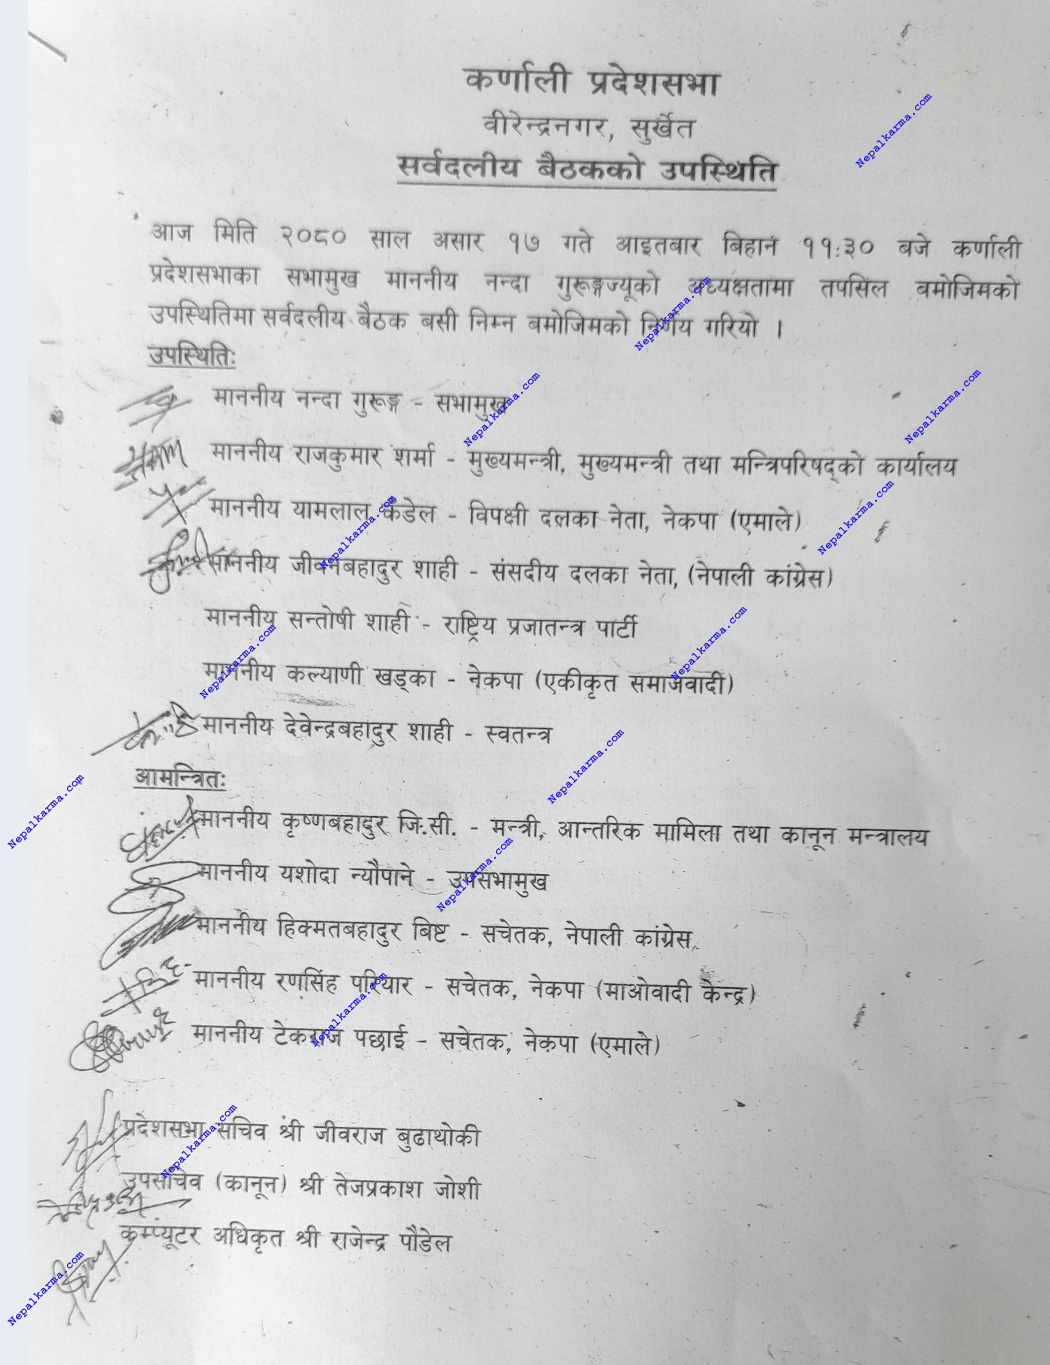 कर्णाली प्रदेशसभा
वीरेन्द्रनगर, सुर्खेत
सर्वदलीय बैठकको उपस्थिति
आज मिति २०८० साल असार १७ गते आइतबार बिहान ११:३० बजे कर्णाली
प्रदेशसभाका सभामुख माननीय नन्दा गुरूङ्गज्यूको अध्यक्षतामा तपसिल बमोजिमको
उपस्थितिमा सर्वदलीय बैठक बसी निम्न बमोजिमको निर्णय गरियो ।
उपस्थितिः
माननीय नन्दा गुरूङ्ग - सभामुख
माननीय राजकुमार शर्मा - मुख्यमन्त्री, मुख्यमन्त्री तथा मन्त्रिपरिषद्को कार्यालय
माननीय यामलाल कँडेल - विपक्षी दलका नेता, नेकपा (एमाले)
माननीय जीवनबहादुर शाही - संसदीय दलका नेता, (नेपाली कांग्रेस)
माननीय सन्तोषी शाही - राष्ट्रिय प्रजातन्त्र पार्टी
माननीय कल्याणी खड्का - नेकपा (एकीकृत समाजवादी)
माननीय देवेन्द्रबहादुर शाही - स्वतन्त्र
आमन्त्रितः
माननीय कृष्णबहादुर जि.सी. - मन्त्री, आन्तरिक मामिला तथा कानून मन्त्रालय
माननीय यशोदा न्यौपाने - उपसभामुख
माननीय हिक्मतबहादुर बिष्ट - सचेतक, नेपाली कांग्रेस
माननीय रणसिंह परियार - सचेतक, नेकपा (माओवादी केन्द्र)
माननीय टेकराज पछाई - सचेतक, नेकपा (एमाले)
प्रदेशसभा सचिव श्री जीवराज बुढाथोकी
उपसचिव (कानून) श्री तेजप्रकाश जोशी
कम्प्यूटर अधिकृत श्री राजेन्द्र पौडेल
Nepalkarma.com
Nepalkarma.com
Nepalkarma.com
Nepalkarma.com
Nepalkarma.com
Nepalkarma.com
Nepalkarma.com
Nepalkarma.com
Nepalkarma.com
Nepalkarma.com
Nepalkarma.com
Nepalkarma.com
Nepalkarma.com
Nepalkarma.com